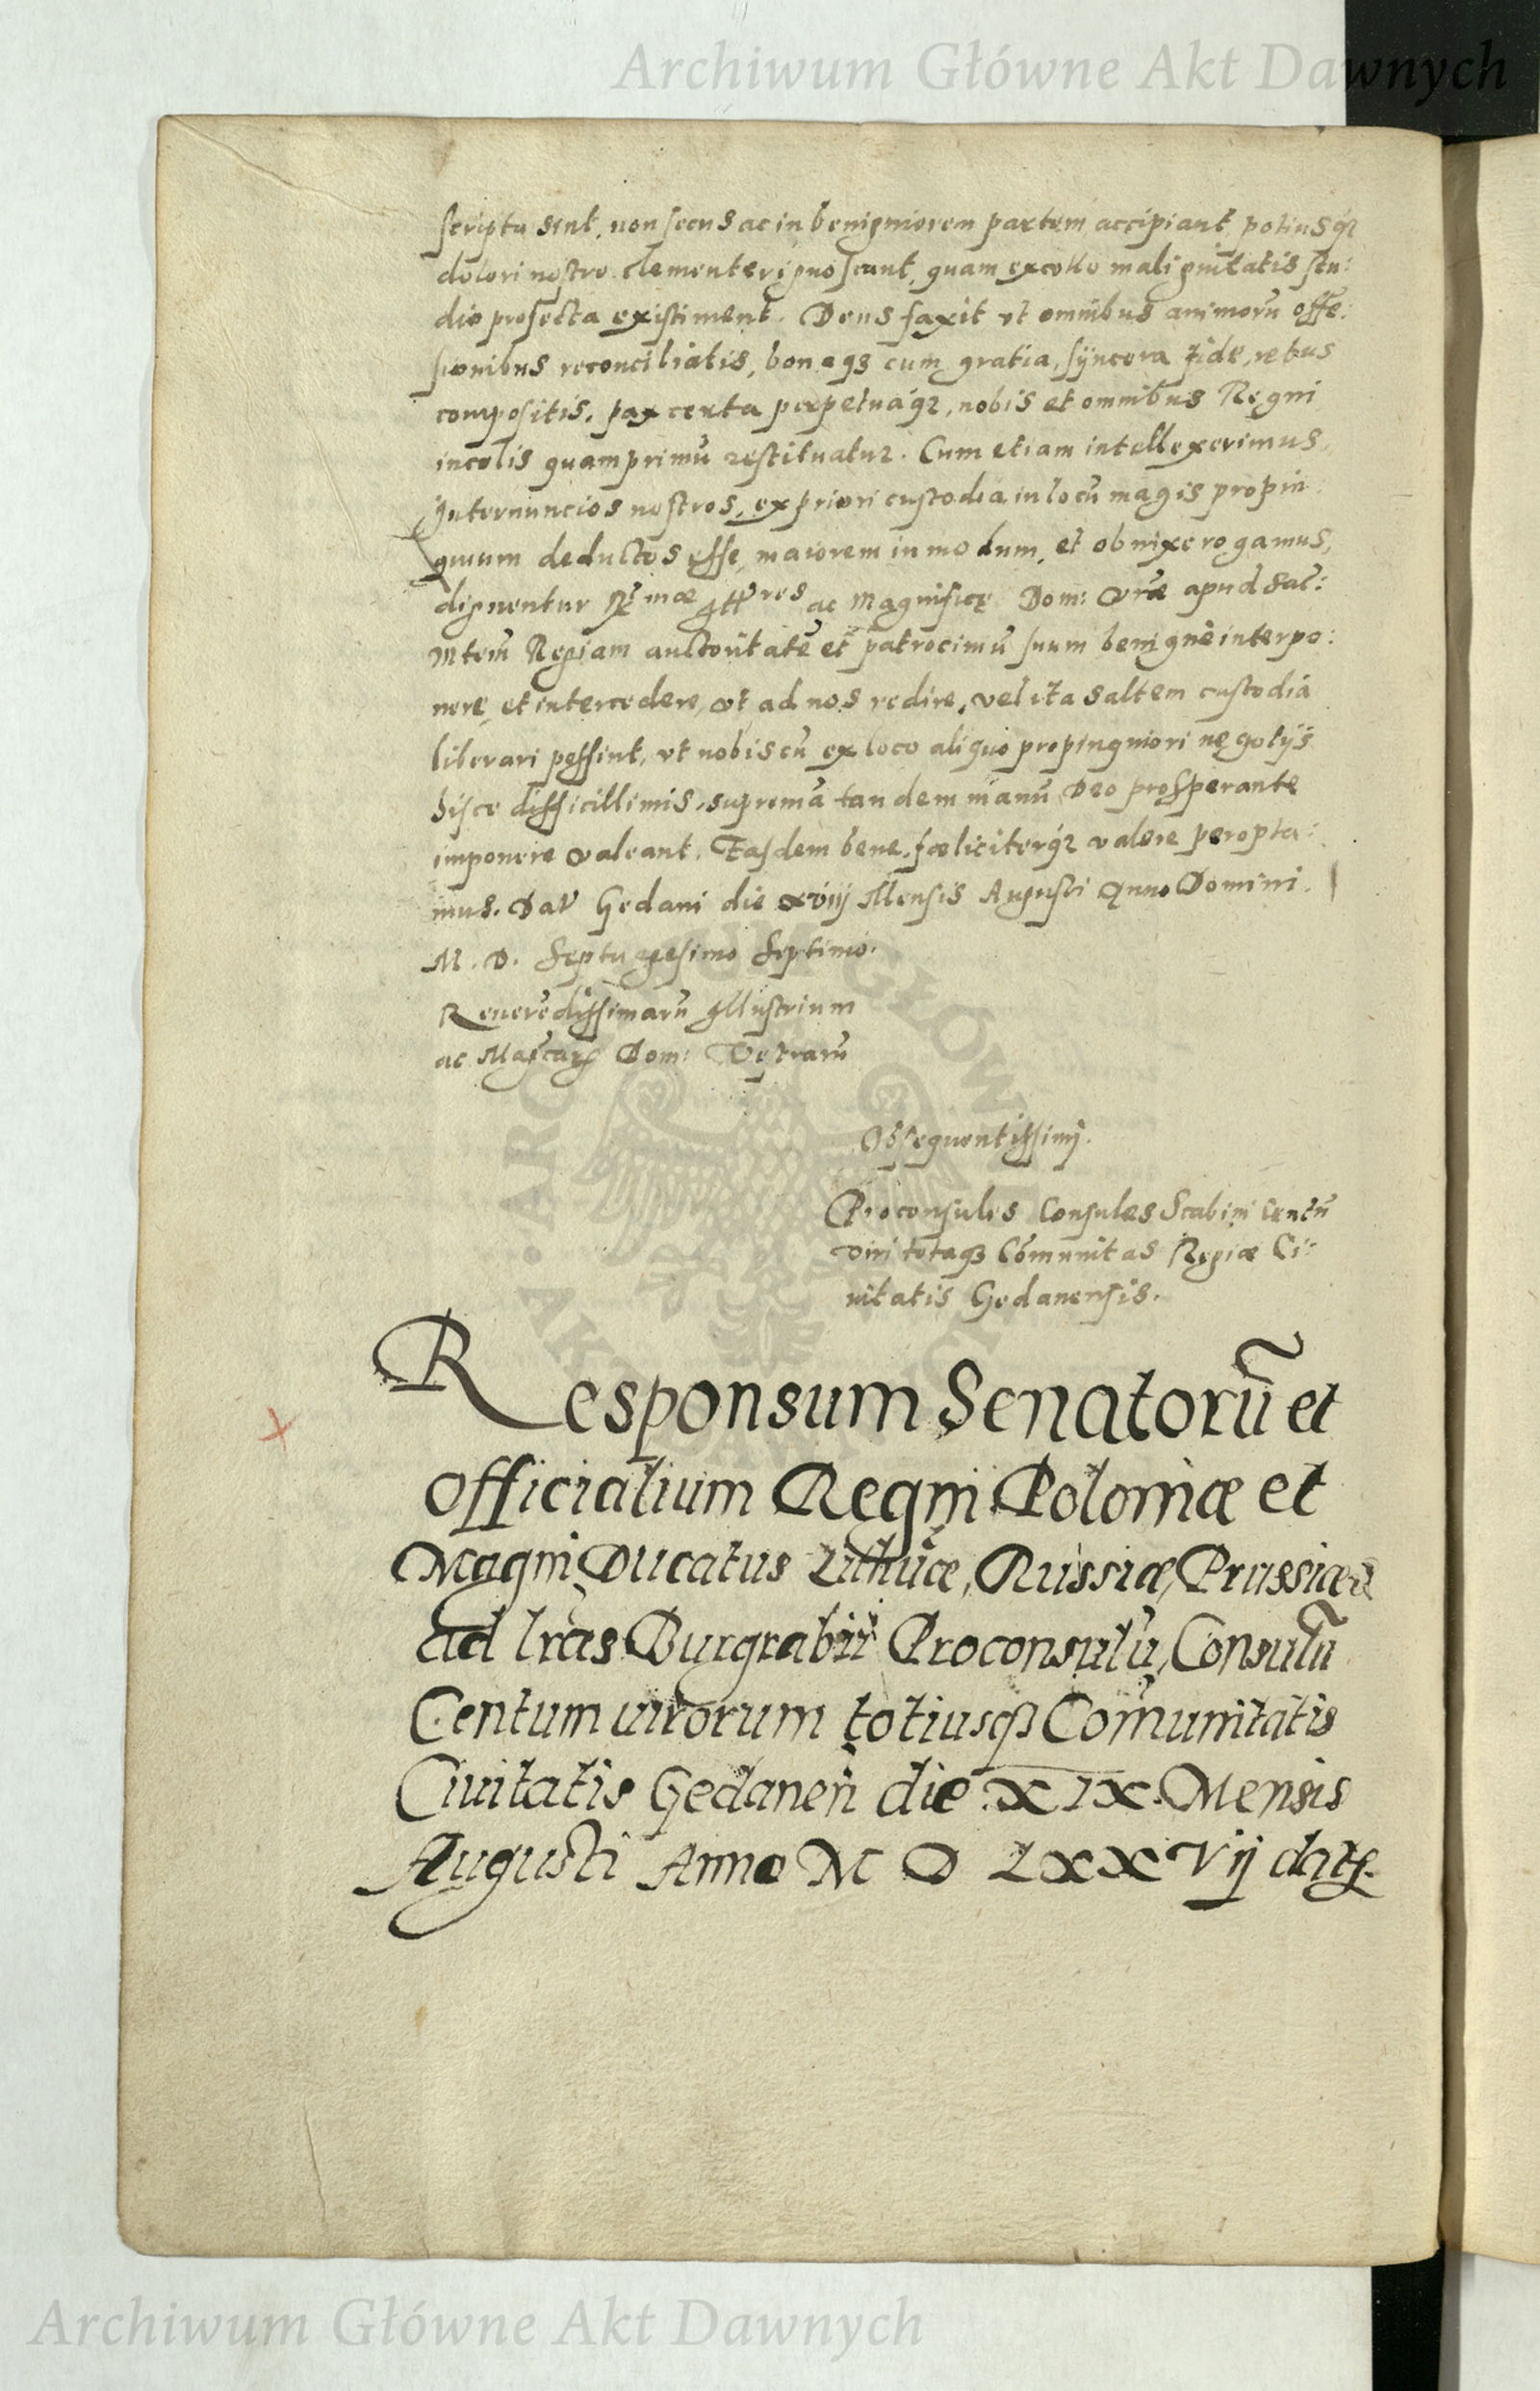 Archiwum Główne Akt Dawnych
scripta sint, non secus ac in benigniorem partem accipiant, potiusqꝫ
dolori nostro clementer ignoscant, quam ex ollo malignitatis stu:
dio profecta existiment. Deus faxit vt omnibus animorũ offe:
sionibus reconciliatis, bonaqꝫ cum gratia, syncera fide, rebus
compositis, pax certa perpetuaqꝫ, nobis et omnibus Regni
incolis quamprimũ restituatur. Cum etiam intellexerimus,
Internuncios nostros, ex priori custodia in locũ magis propin
quum deductos esse, maiorem in modum, et obnixe rogamus,
dignentur Rmæ Illres ac Magnificę Dom: Vræ apud Sac:
Mtem̃ Regiam auctoritatẽ et patrocinũ suum benigne interpo:
nere, et intercedere, vt ad nos redire, vel ita saltem custodia
liberari possint, vt nobiscũ ex loco aliquo propinquiori negotijs
hisce difficillimis, supremã tandem manũ Deo prosperante
imponere valeant. Easdem bene, fœliciterqꝫ valere peropta:
mus. Dat Gedani die xviij Mensis Augusti Anno Domini.
M. D. Septuagesimo Septimo.
Reuerẽdissimarũ Illustrium
ac Magcarꝝ Dom: Vestrarũ
Obsequentissimj.
Proconsules Consules Scabini Centũ
viri totaqꝫ Com̃unitas Regiæ Ci:
uitatis Gedanensis.
Responsum Senatorũ et
officialium Regni Poloniæ et
Magni Ducatus Lithuæ, Russiæ, Prussiæ
ad lras Burgrabii Proconsulũ, Consulũ
Centum uirorum totiusqꝫ Com̃unitatis
Ciuitatis Gedanen̄ die XIX Mensis
Augusti Anno M D LXXVij datꝭ.
Archiwum Główne Akt Dawnych